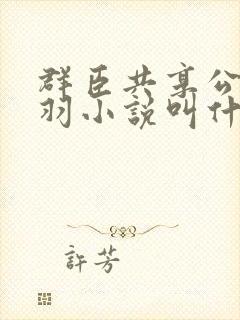 群臣共享公
羽小說叫什
許芳